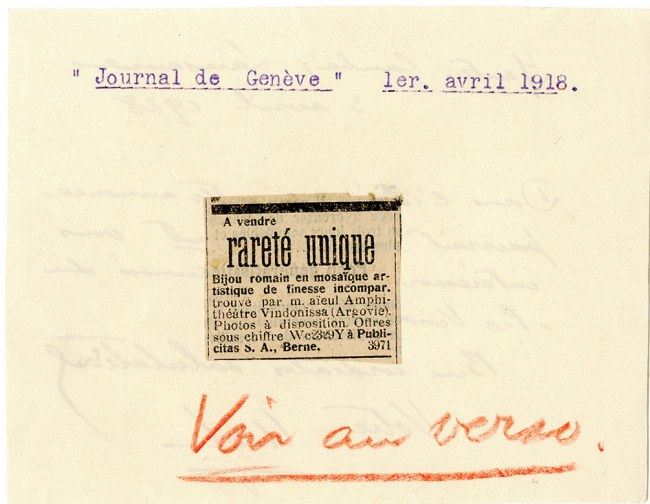 " Journal de Genève " 1er. avril 1918.
A vendre
rareté unique
Bijou romain en mosaïque ar-
tistique de finesse incompar.
trouvé par m. aïeul Amphi-
théâtre Vindonissa (Argovie).
Photos à disposition. Offres
sous chiffre Wc2329Y à Publi-
citas S. A., Berne. 3971
Voir au verso.